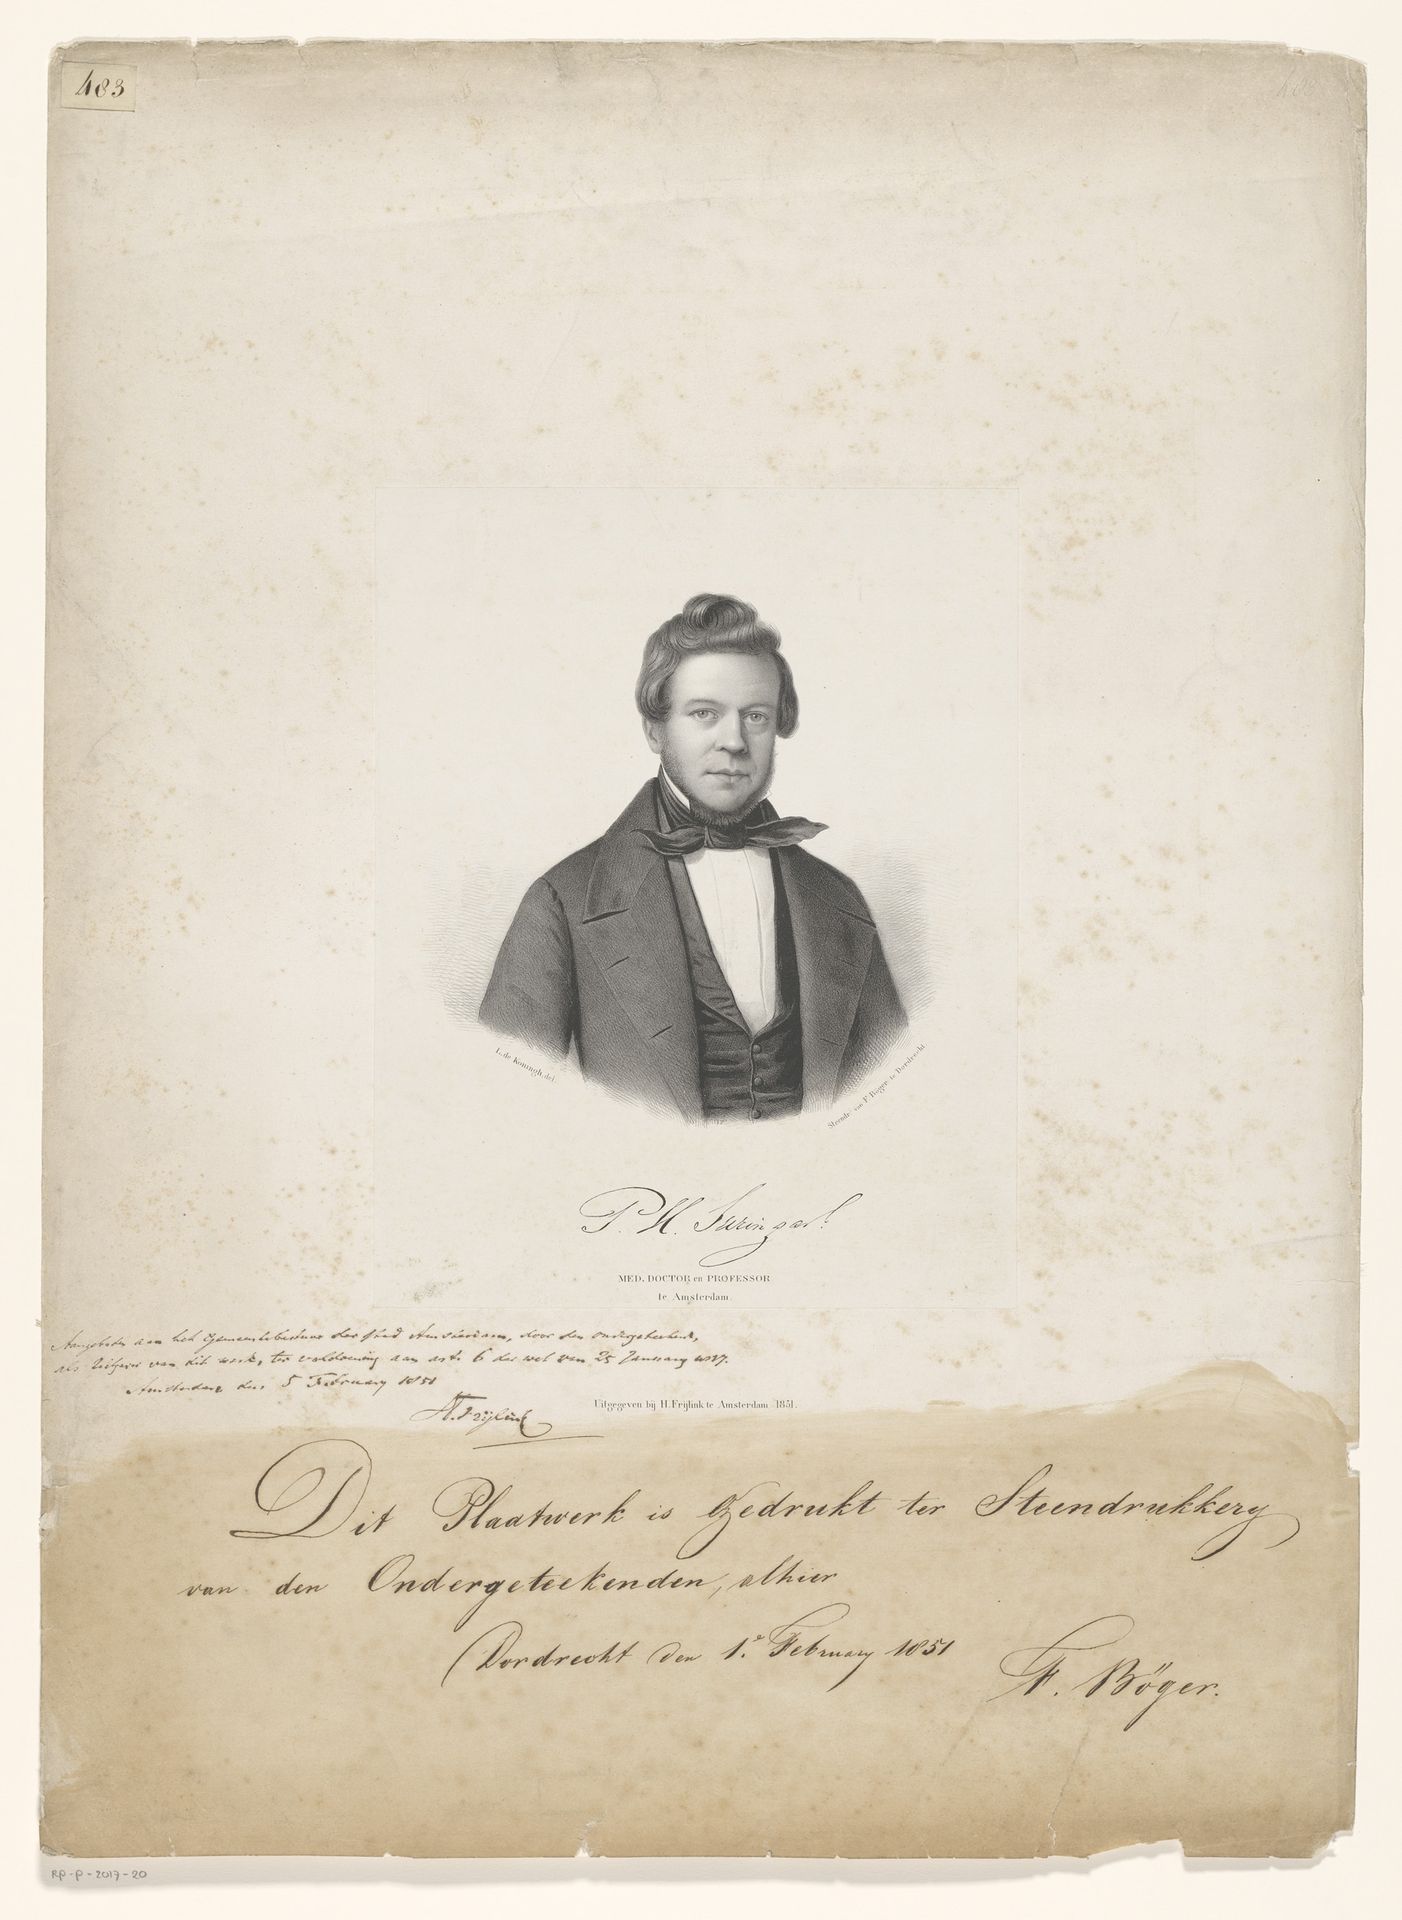 483
L. de Koningh. del.
Steendr. van F. Böger te Dordrecht.
P. H. Suringar.
MED. DOCTOR en PROFESSOR
te Amsterdam.
Aangeboden aan het Gemeentebestuur der stad Amsterdam, door den ondergeteekende,
als Uitgever van dit werk, ter voldoening aan art. 6 der wet van 25 January 1817.
Amsterdam den 5 February 1851
H. Frijlink
Uitgegeven bij H. Frijlink te Amsterdam 1851.
Dit Plaatwerk is Gedrukt ter Steendrukkery
van den Ondergeteekenden, alhier
Dordrecht den 1e February 1851
F. Böger.
RP-P-2017-20